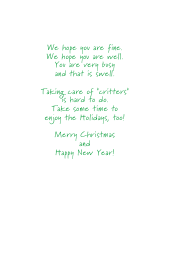 We hope you are fine.
We hope you are well.
You are very busy
and that is swell.
Taking care of "critters"
is hard to do.
Take some time to
enjoy the Holidays, too!
Merry Christmas
and
Happy New Year!